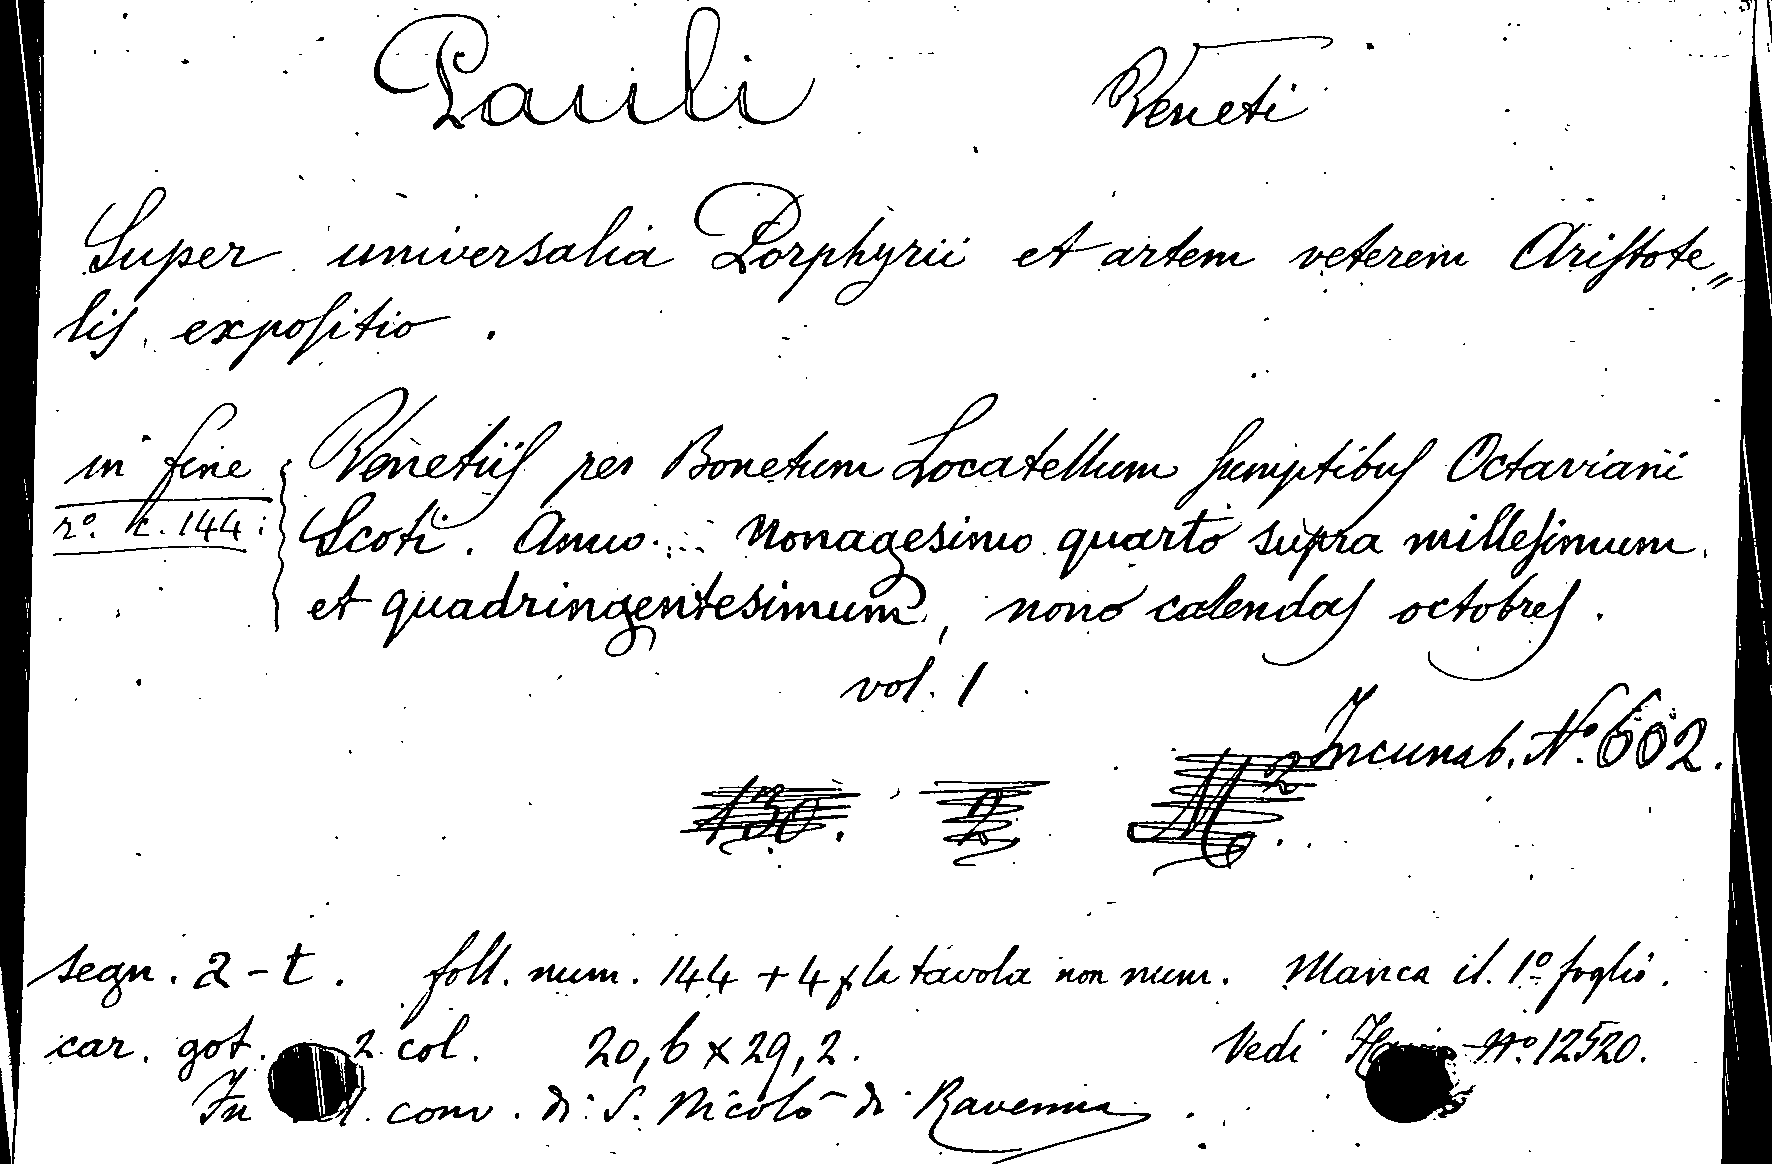 Pauli Veneti
Super universalia Porphyrii et artem veterem Aristote„
lis expositio.
in fine Venetiis per Bonetum Locatellum sumptibus Octaviani
rº. c. 144: Scoti. Anno... Nonagesimo quarto supra millesimum
et quadringentesimum, nono calendas octobres.
vol. 1
Incunab. Nº. 602.
130. 2 M 2
segn. a - t. foll. num. 144 + 4 p la tavola non num. Manca il 1º foglio.
car. got. 2 col. 20,6 x 29,2. Vedi Nº 12520.
Fu conv. di S. Nicolò di Ravenna.